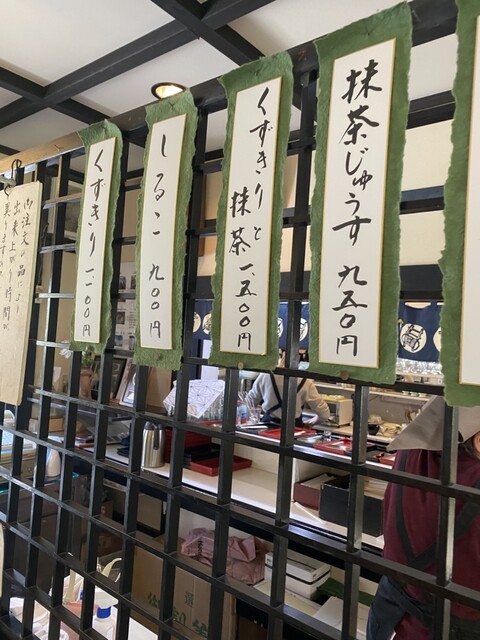 抹茶じゅうす 九五〇円
くずきりと
抹茶 一、五〇〇円
しるこ 九〇〇円
くずきり 一二〇〇円
御注文の品により
出来上がり時間が